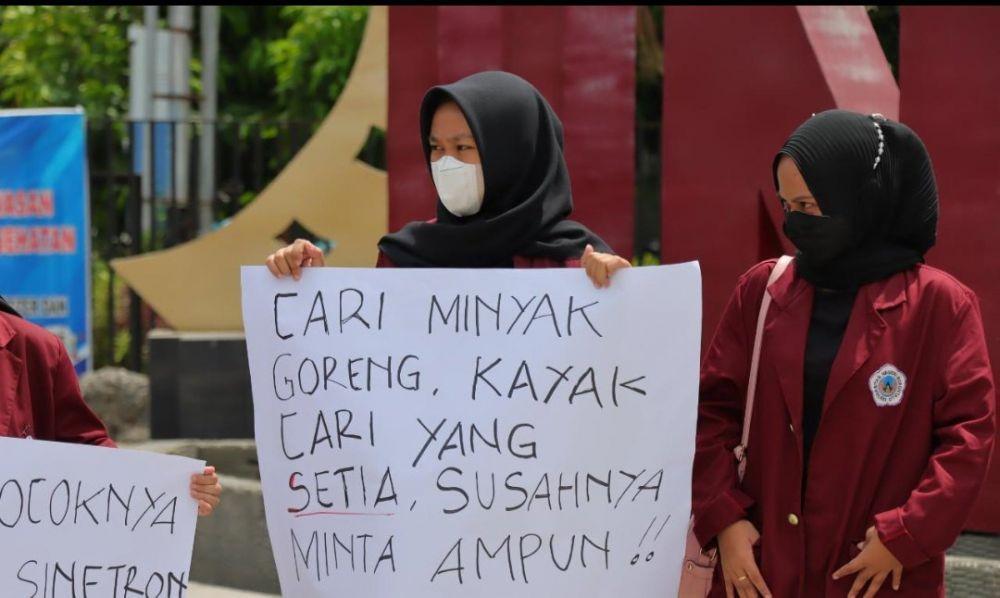 CARI MINYAK
GORENG, KAYAK
CARI YANG
SETIA, SUSAHNYA
MINTA AMPUN !!
OCOKNYA
SINETRON
WASAN
SEHATAN